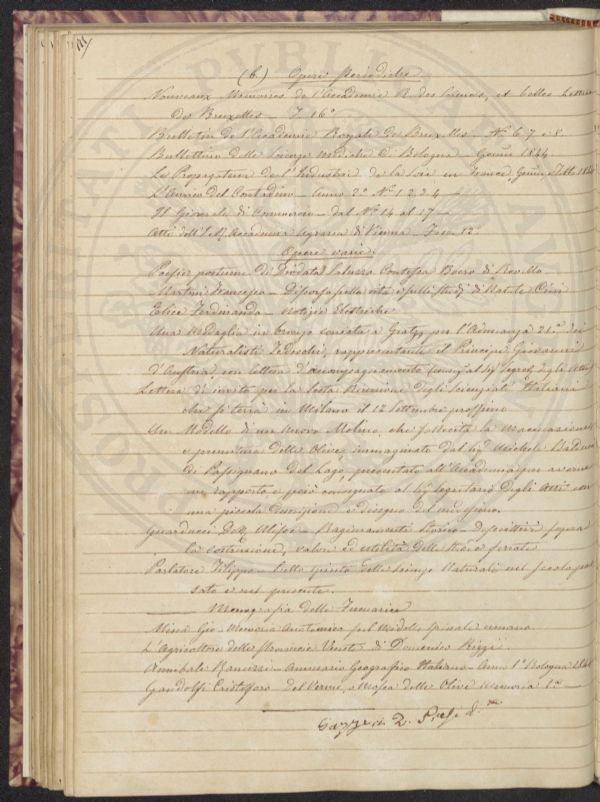 (6.) Opere periodiche
Nouveaux Memoires de l'Academie R. des Sciences, et belles Lettres
de Bruxelles - T. 16°
Bulletin de l'Academie Royale de Bruxelles - N.° 6. 7 e 8
Bullettino delle Scienze mediche di Bologna - Genn. 1844
Le Propagateur de l'Industrie de la Soie en France
L'Amico del Contadino - Anno 2° N.° 1. 2. 3. 4
Il Giornale di Commercio - dal N.° 14 al 17
Atti dell' Accademia Agraria di Vienna - Fasc. 12°
Opere varie
Poesie postume di Diodata Saluzzo Contessa Roero di Revello
Martini Francesco - Discorso sulla vita e sugli studj di Natale Cini
Elice Ferdinando - Notizie Elettriche
Una Medaglia in bronzo coniata a Gratz, per l'Adunanza 21.a dei
Naturalisti Tedeschi, rappresentante il Principe Giovanni
d'Austria con lettera d'accompagnamento degli Atti
Lettera di invito per la Sesta Riunione degli Scienziati Italiani
che si terrà in Milano il 12 Settembre prossimo
Un Modello di un nuovo Molino, che facilita la macinazione
e premitura delle Olive, immaginato dal Sig. Michele
di Passignano del Lago, presentato all'Accademia per averne
un rapporto e però consegnato al Sig. Segretario degli Atti con
una piccola descrizione e disegno del medesimo.
Guarducci Ulisse - Ragionamenti Storico - descrittivi sopra
la costruzione, valore ed utilità delle strade ferrate
Parlatore Filippo - Sullo spirito delle Scienze Naturali nel Secolo pas
sato e nel presente.
Monografia delle Fumarie
Misà Gio. - Memoria Anatomica sul midollo spinale umano
L'Agricoltore delle Provincie Venete di Domenico Rizzi.
Annibale Ranuzzi - Annuario Geografico Italiano - Anno 1° Bologna 1844
Gandolfi Cristoforo del Verme, o Mosca delle Olive Memoria 1.a